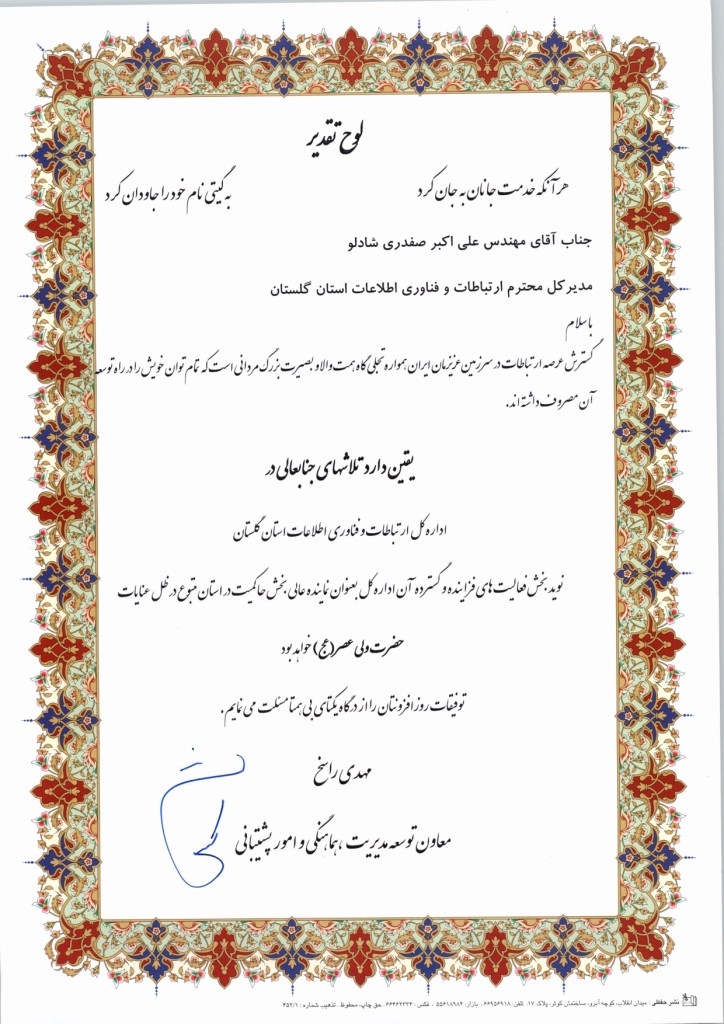 لوح تقدیر
هر آنکه خدمت جانان به جان کرد به گیتی نام خود را جاودان کرد
جناب آقای مهندس علی اکبر صفدری شادلو
مدیرکل محترم ارتباطات و فناوری اطلاعات استان گلستان
با سلام
گسترش عرصه ارتباطات در سرزمین عزیزمان ایران همواره تجلی گاه همت والا و بصیرت بزرگ مردانی است که تمام توان خویش را در راه توسعه
آن مصروف داشته اند.
یقین دارد تلاشهای جنابعالی در
اداره کل ارتباطات و فناوری اطلاعات استان گلستان
نوید بخش فعالیت های فزاینده و گسترده آن اداره کل بعنوان نماینده عالی بخش حاکمیت در استان متبوع در ظل عنایات
حضرت ولی عصر(عج) خواهد بود
توفیقات روز افزونتان را از درگاه یکتای بی همتا مسئلت می نمایم.
مهدی راسخ
معاون توسعه مدیریت ،هماهنگی و امور پشتیبانی
نشر حفظی : میدان انقلاب، کوچه آبرو، ساختمان کوثر، پلاک ۱۷. تلفن: ۶۶۹۵۶۹۱۸ . بازار: ۵۵۶۱۸۹۸۴ . فکس : ۶۶۴۶۲۲۲۴ . حق چاپ، محفوظ. تذهیب شماره : ۴۵۲/۱